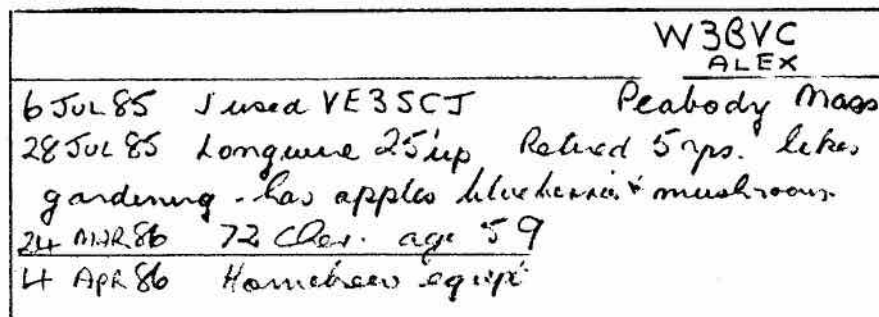 W3BVC
ALEX
6 JUL 85 I used VE3SCJ Peabody Mass
28 JUL 85 Longwire 25' up Retired 5 yrs. likes
gardening - has apples blueberries & mushrooms
24 MAR 86 72 Chev. age 59
4 APR 86 Homebrew equipt